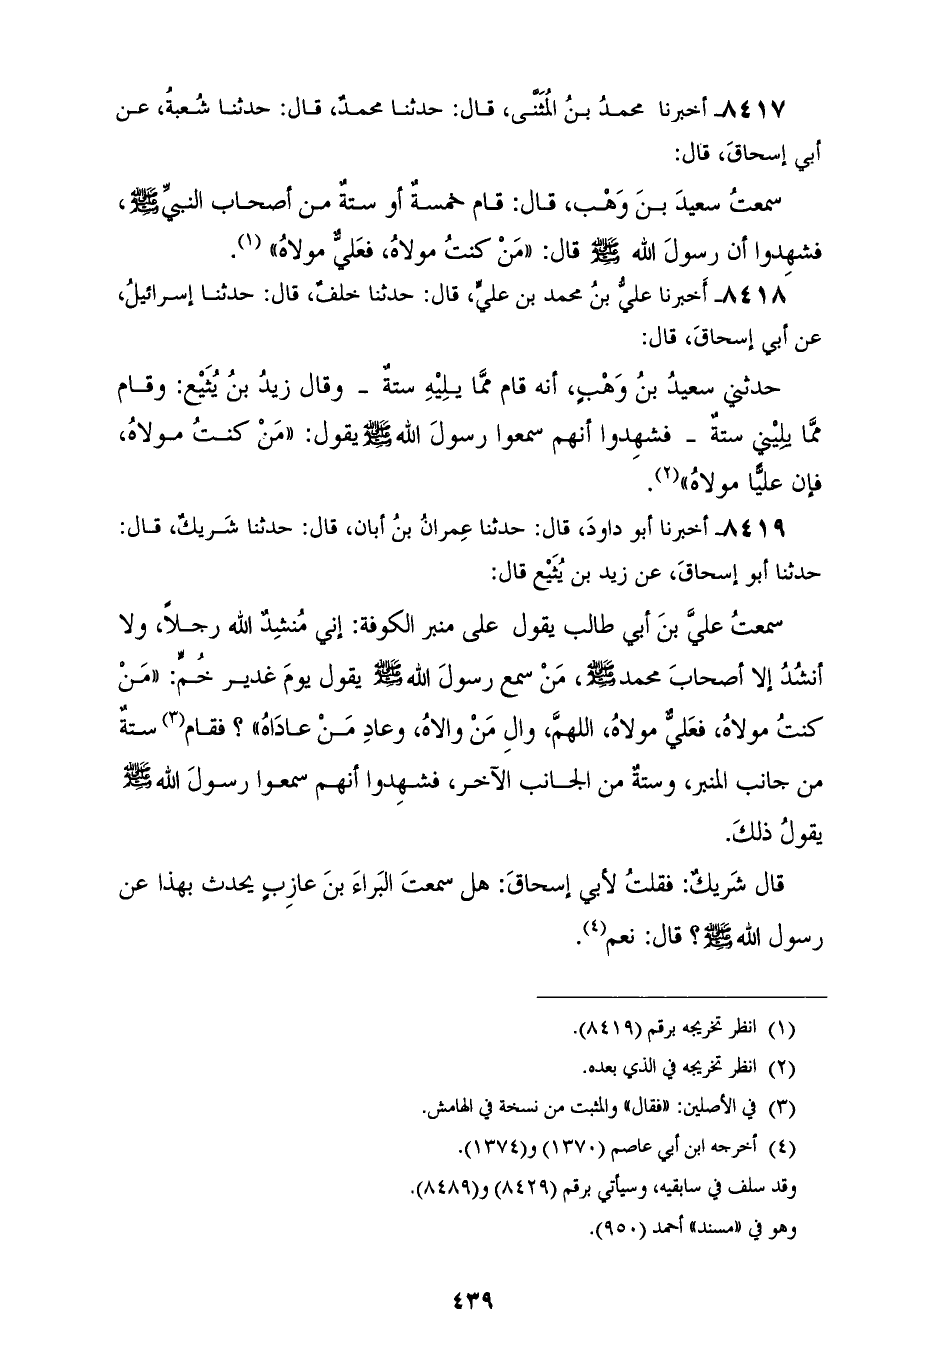 ٨٤١٧ـ أخبرنا محمدُ بـنُ المُثَنَّـى، قـال: حدثنـا محمـدٌ، قـال: حدثنـا شُـعبةُ، عـن
أبي إسحاقَ، قال:
سمعتُ سعيدَ بـنَ وَهْـب، قـال: قـام خمسـةٌ أو سـتةٌ مـن أصحـاب النبيِّ ﷺ،
فشهِدوا أن رسولَ الله ﷺ قال: «مَنْ كنتُ مولاهُ، فعَليٌّ مولاهُ» (١).
٨٤١٨ـ أَخبرنا عليُّ بنُ محمد بن عليٍّ، قال: حدثنا خلفٌ، قال: حدثنـا إسـرائيلُ،
عن أبي إسحاقَ، قال:
حدثني سعيدُ بنُ وَهْبٍ، أنه قام ممَّا يـلِيْهِ ستةٌ ـ وقال زيدُ بنُ يُثَيْع: وقـام
ممَّا يلِيْني ستةٌ ـ فشهِدوا أنهم سمعوا رسولَ الله ﷺ يقول: «مَنْ كنـتُ مـولاهُ،
فإن عليًّا مولاهُ»(٢).
٨٤١٩ـ أخبرنا أبو داودَ، قال: حدثنا عِمرانُ بنُ أبان، قال: حدثنا شَـريكٌ، قـال:
حدثنا أبو إسحاقَ، عن زيد بن يُثَيْع قال:
سمعتُ عليَّ بنَ أبي طالب يقول على منبر الكوفة: إني مُنشِدٌ الله رجـلاً، ولا
أنشُدُ إلا أصحابَ محمد ﷺ، مَنْ سمع رسولَ الله ﷺ يقول يومَ غديـر خُـمٍّ: «مَـنْ
كنتُ مولاهُ، فعَليٌّ مولاهُ، اللهمَّ، والِ مَنْ والاهُ، وعادِ مَـنْ عـادَاهُ» ؟ فقـام(٣) سـتةٌ
من جانب المنبر، وستةٌ من الجـانب الآخـر، فشـهِدوا أنهـم سمعـوا رسـولَ الله ﷺ
يقولُ ذلكَ.
قال شَريكٌ: فقلتُ لأبي إسحاقَ: هل سمعتَ البَراءَ بنَ عازِبٍ يحدث بهذا عن
رسول الله ﷺ؟ قال: نعم(٤).
(١) انظر تخريجه برقم (٨٤١٩).
(٢) انظر تخريجه في الذي بعده.
(٣) في الأصلين: «فقال» والمثبت من نسخة في الهامش.
(٤) أخرجه ابن أبي عاصم (١٣٧٠) و(١٣٧٤).
وقد سلف في سابقيه، وسيأتي برقم (٨٤٢٩) و(٨٤٨٩).
وهو في «مسند» أحمد (٩٥٠).
٤٣٩